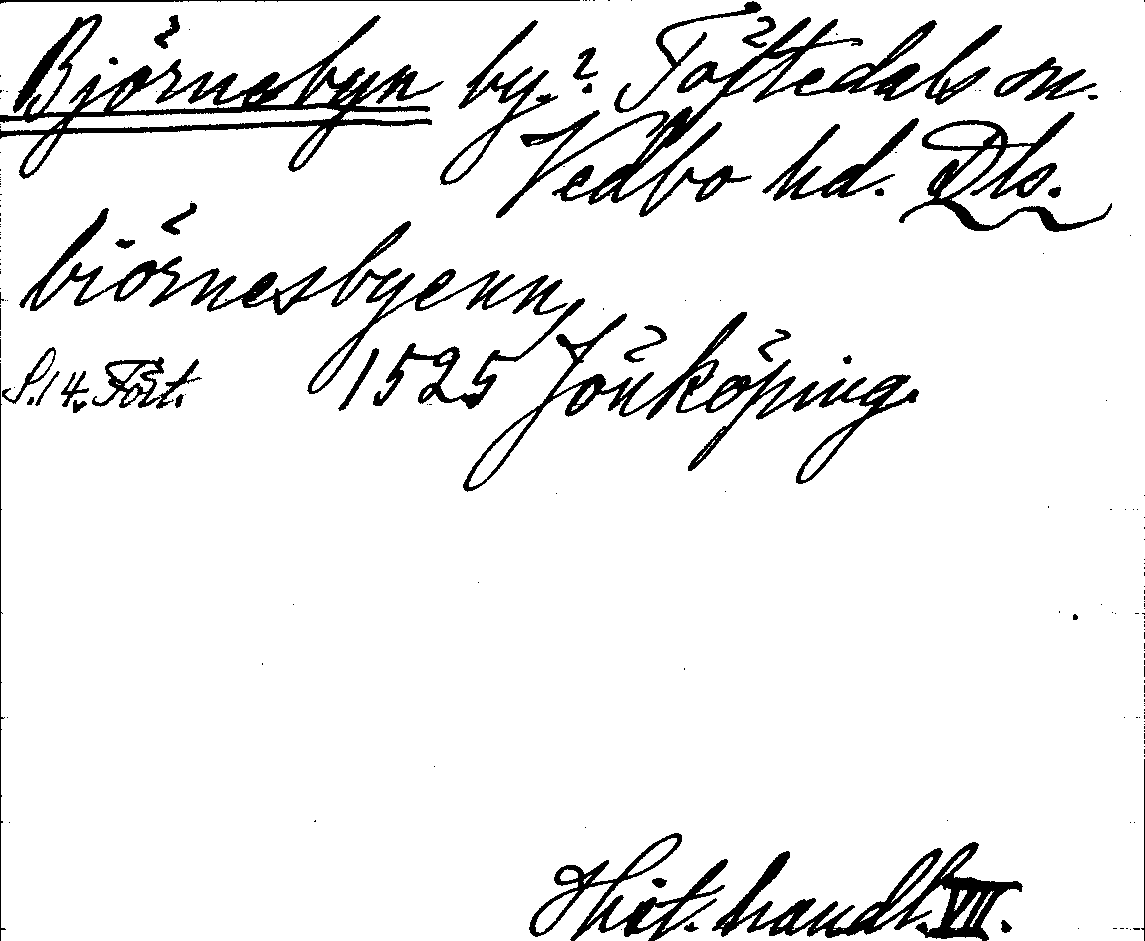 Björnebyn by.? Töftedals sn.
Vedbo hd. Dls.
biörnesbyenn,
S. 14. Fört. 1525 Jönköping.
Hist. handl. VII.